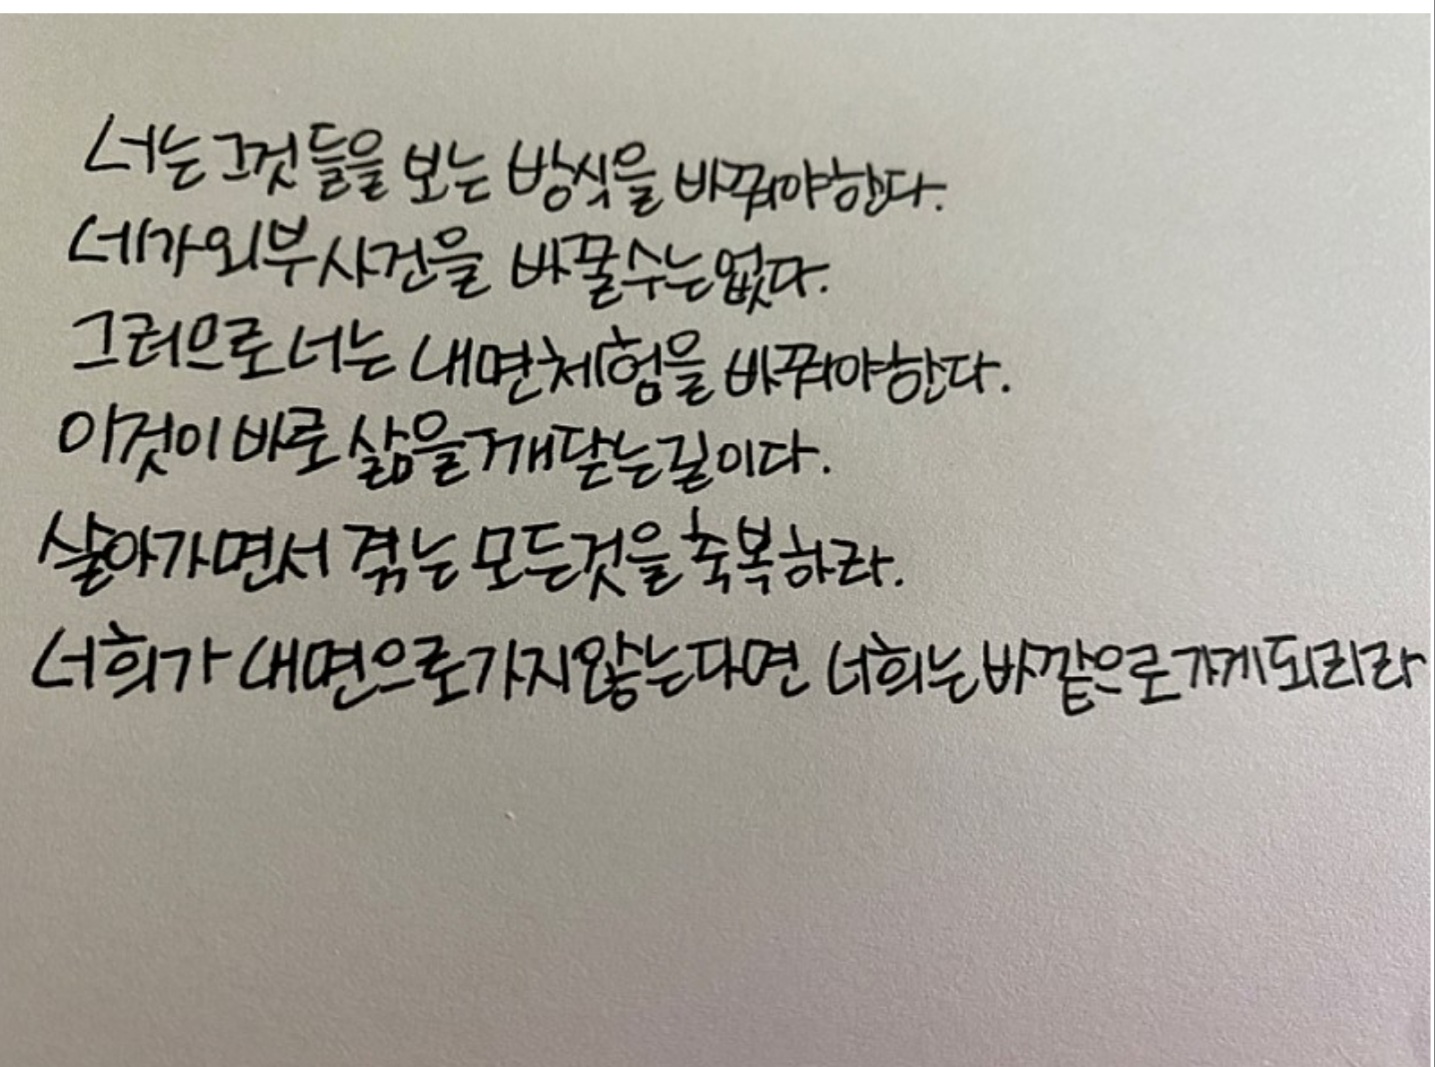 너는 그것들을 보는 방식을 바꿔야한다.
네가 외부사건을 바꿀수는없다.
그러므로 너는 내면체험을 바꿔야한다.
이것이 바로 삶을 깨닫는길이다.
살아가면서 겪는 모든것을 축복하라.
너희가 내면으로가지않는다면 너희는 바깥으로 가게되리라